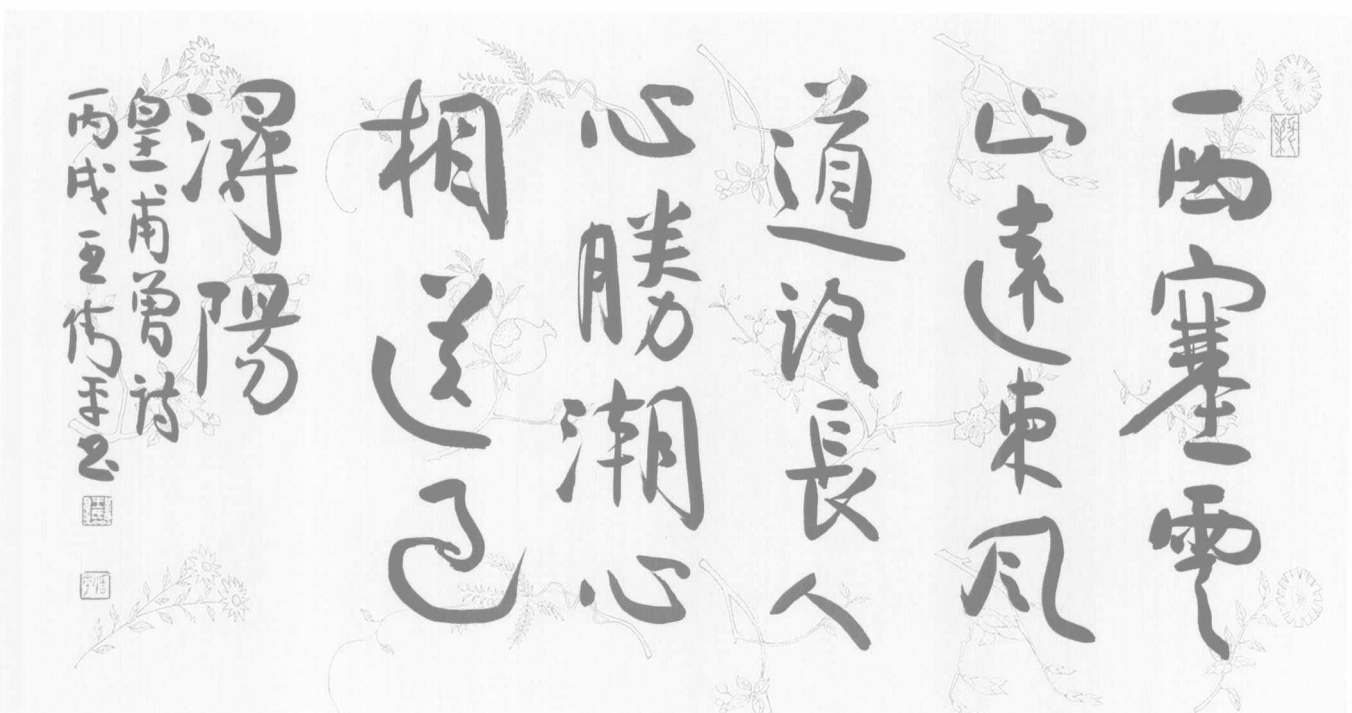 西塞雲
山遠東風
道路長人
心勝潮心
相送過
潯陽
皇甫曾詩
丙戌王偉平书